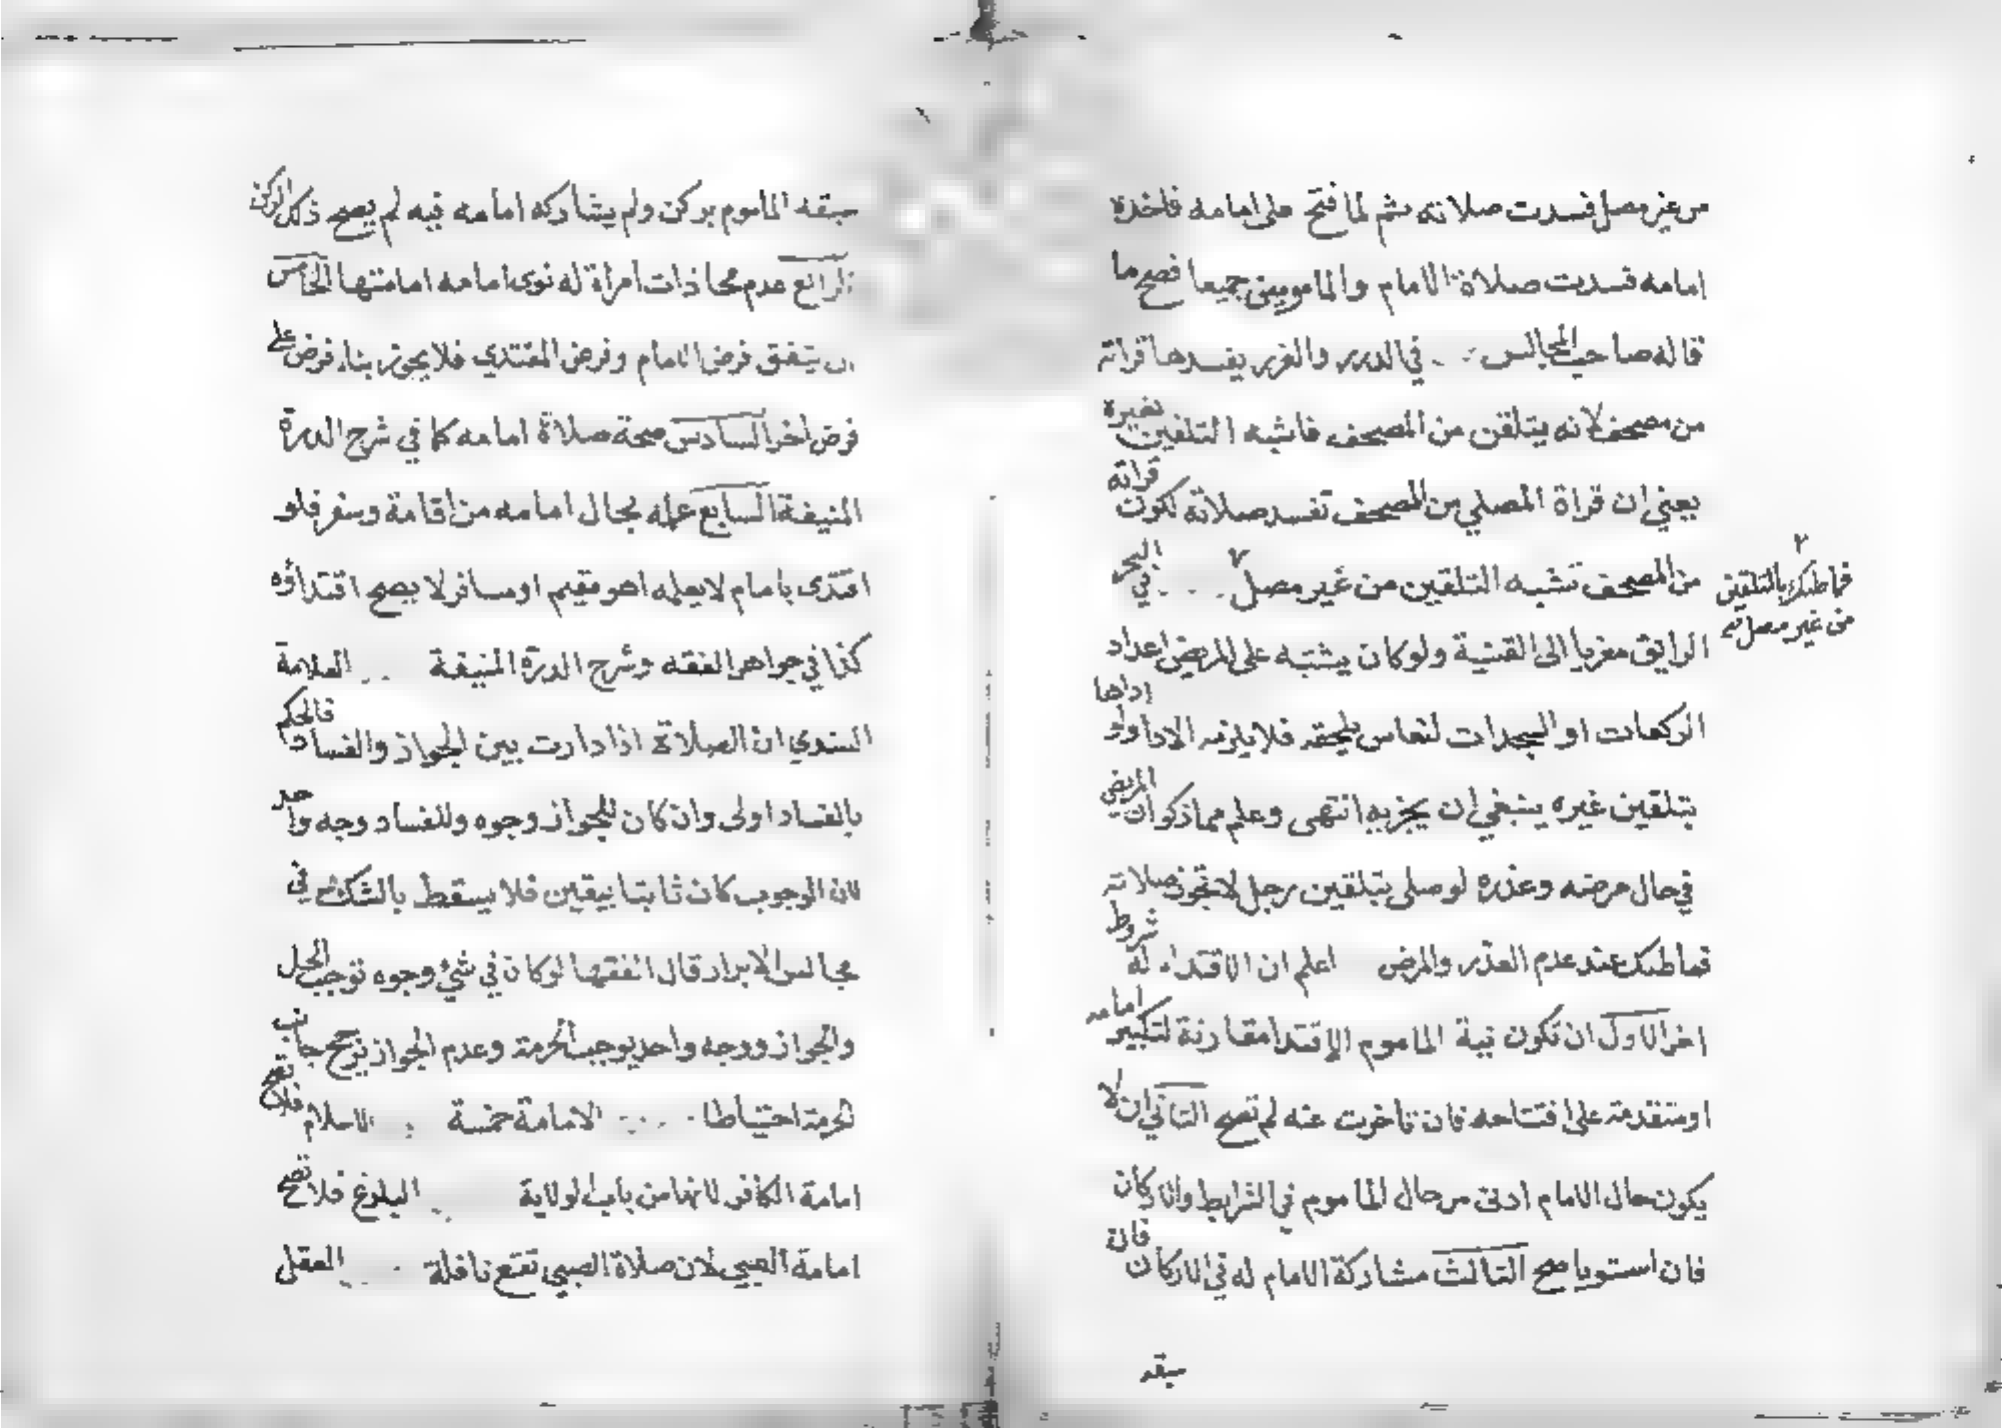 من غير مصل فسدت صلاته ثم لما فتح على امامه فاخذه
امامه فسدت صلاة الامام والمامومين جميعا فصح ما
قاله صاحب المجالس في الدرر والغرر يفسدها قراته
من مصحف لانه يتلقن من المصحف فاشبه التلقين بغيره
يعني ان قراة المصلي من المصحف تفسد صلاته لكون قراته
من المصحف تشبه التلقين من غير مصل ٢ في البحر
فما ظنك بالتلقين
من غير مصل
الرايق معزيا الى القنية ولو كان يشتبه على المريض اعداد
الركعات او السجدات لنعاس يلحقه فلا يلزمه الادا ولو اداها
بتلقين غيره ينبغي ان يجزيه انتهى وعلم مما ذكر ان المريض
في حال مرضه وعذره لو صلى بتلقين رجل لا تجوز صلاته
فما ظنك عند عدم العذر والمرض اعلم ان الاقتداء له شروط
اخر الاول ان تكون نية الماموم الاقتدا مقارنة لتكبير امامه
او متقدمة على افتتاحه فان تاخرت عنه لم تصح الثاني ان لا
يكون حال الامام ادنى من حال الماموم في الشرايط والاركان
فان استويا صح الثالث مشاركة الامام له في الاركان فان
سبقه
سبقه الماموم بركن ولم يشاركه امامه فيه لم يصح ذلك الركن
الرابع عدم محاذات امراة له نوى امامه امامتها الخامس
ان يتفق فرض الامام وفرض المقتدي فلا يجوز بناء فرض على
فرض اخر السادس صحة صلاة امامه كما في شرح الدرة
المنيفة السابع علمه بحال امامه من اقامة وسفر فلو
اقتدى بامام لا يعلمه اهو مقيم او مسافر لا يصح اقتداؤه
كذا في جواهر الفقه وشرح الدرة المنيفة العلامة
السندي ان الصلاة اذا دارت بين الجواز والفساد فالحكم
بالفساد اولى وان كان للجواز وجوه وللفساد وجه واحد
لان الوجوب كان ثابتا بيقين فلا يسقط بالشك في
مجالس الابرار قال الفقها لو كان في شئ وجوه توجب الحل
والجواز ووجه واحد يوجب الحرمة وعدم الجواز يرجح جانب
الحرمة احتياطا الامامة خمسة الاسلام فلا تصح
امامة الكافر لانها من باب الولاية البلوغ فلا تصح
امامة الصبي لان صلاة الصبي تقع نافلة العقل